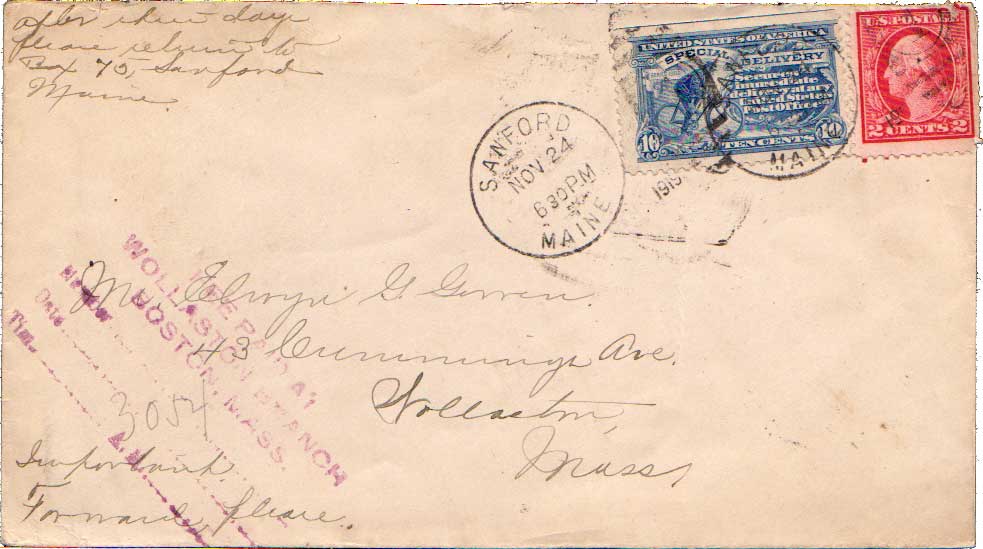 after three days
please return to
Box 75, Sanford
Maine
UNITED STATES OF AMERICA
SPECIAL DELIVERY
Secures
immediate
delivery at any
United States
Post Office
10
10
TEN CENTS
U.S. POSTAGE
2 CENTS 2
SANFORD
NOV. 24
630 PM
MAINE
1919
MAINE
Mr. Elwyn G.
43 Cummings Ave.
Wollaston,
Mass,
FEE PAID AT
WOLLASTON BRANCH
BOSTON, MASS.
Number
Date
Time
A.M.
3054
Important.
Forward, please.